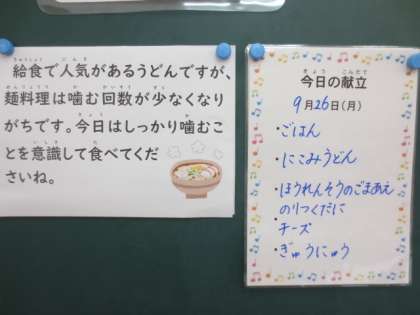 給食で人気があるうどんですが、
麺料理は噛む回数が少なくなり
がちです。今日はしっかり噛むこ
とを意識して食べてくだ
さいね。
今日の献立
9月26日(月)
・ごはん
・にこみうどん
・ほうれんそうのごまあえ
・のりつくだに
・チーズ
・ぎゅうにゅう